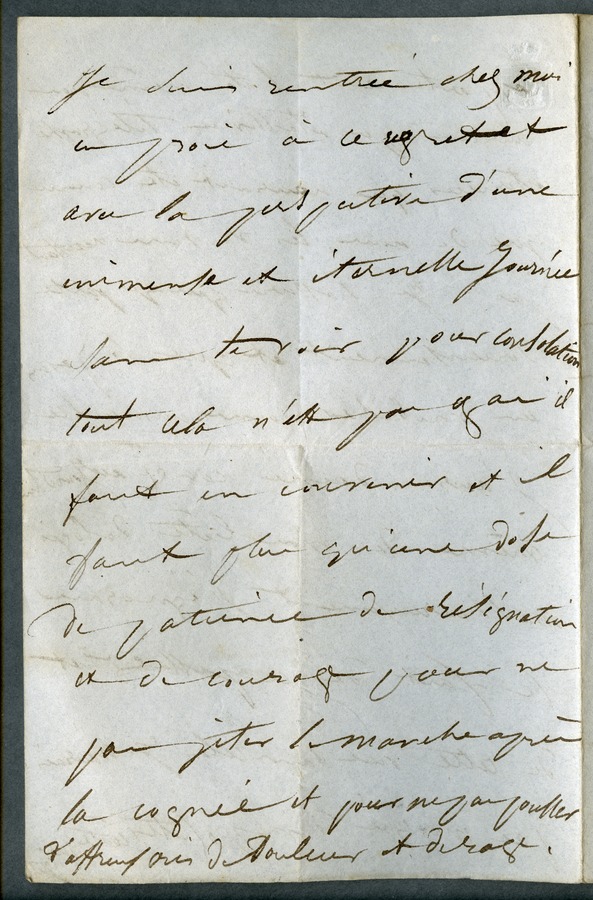 Je suis rentrée chez moi
en proie à ce regret et
avec la perspective d'une
immense et éternelle Journée
sans te voir pour consolation
tout cela n'est pas gai il
faut en convenir et il
faut plus qu'une dose
de patience de résignation
et de courage pour ne
pas jeter le manche après
la cognée et pour ne pas pousser
d'affreux cris de douleur et de rage.